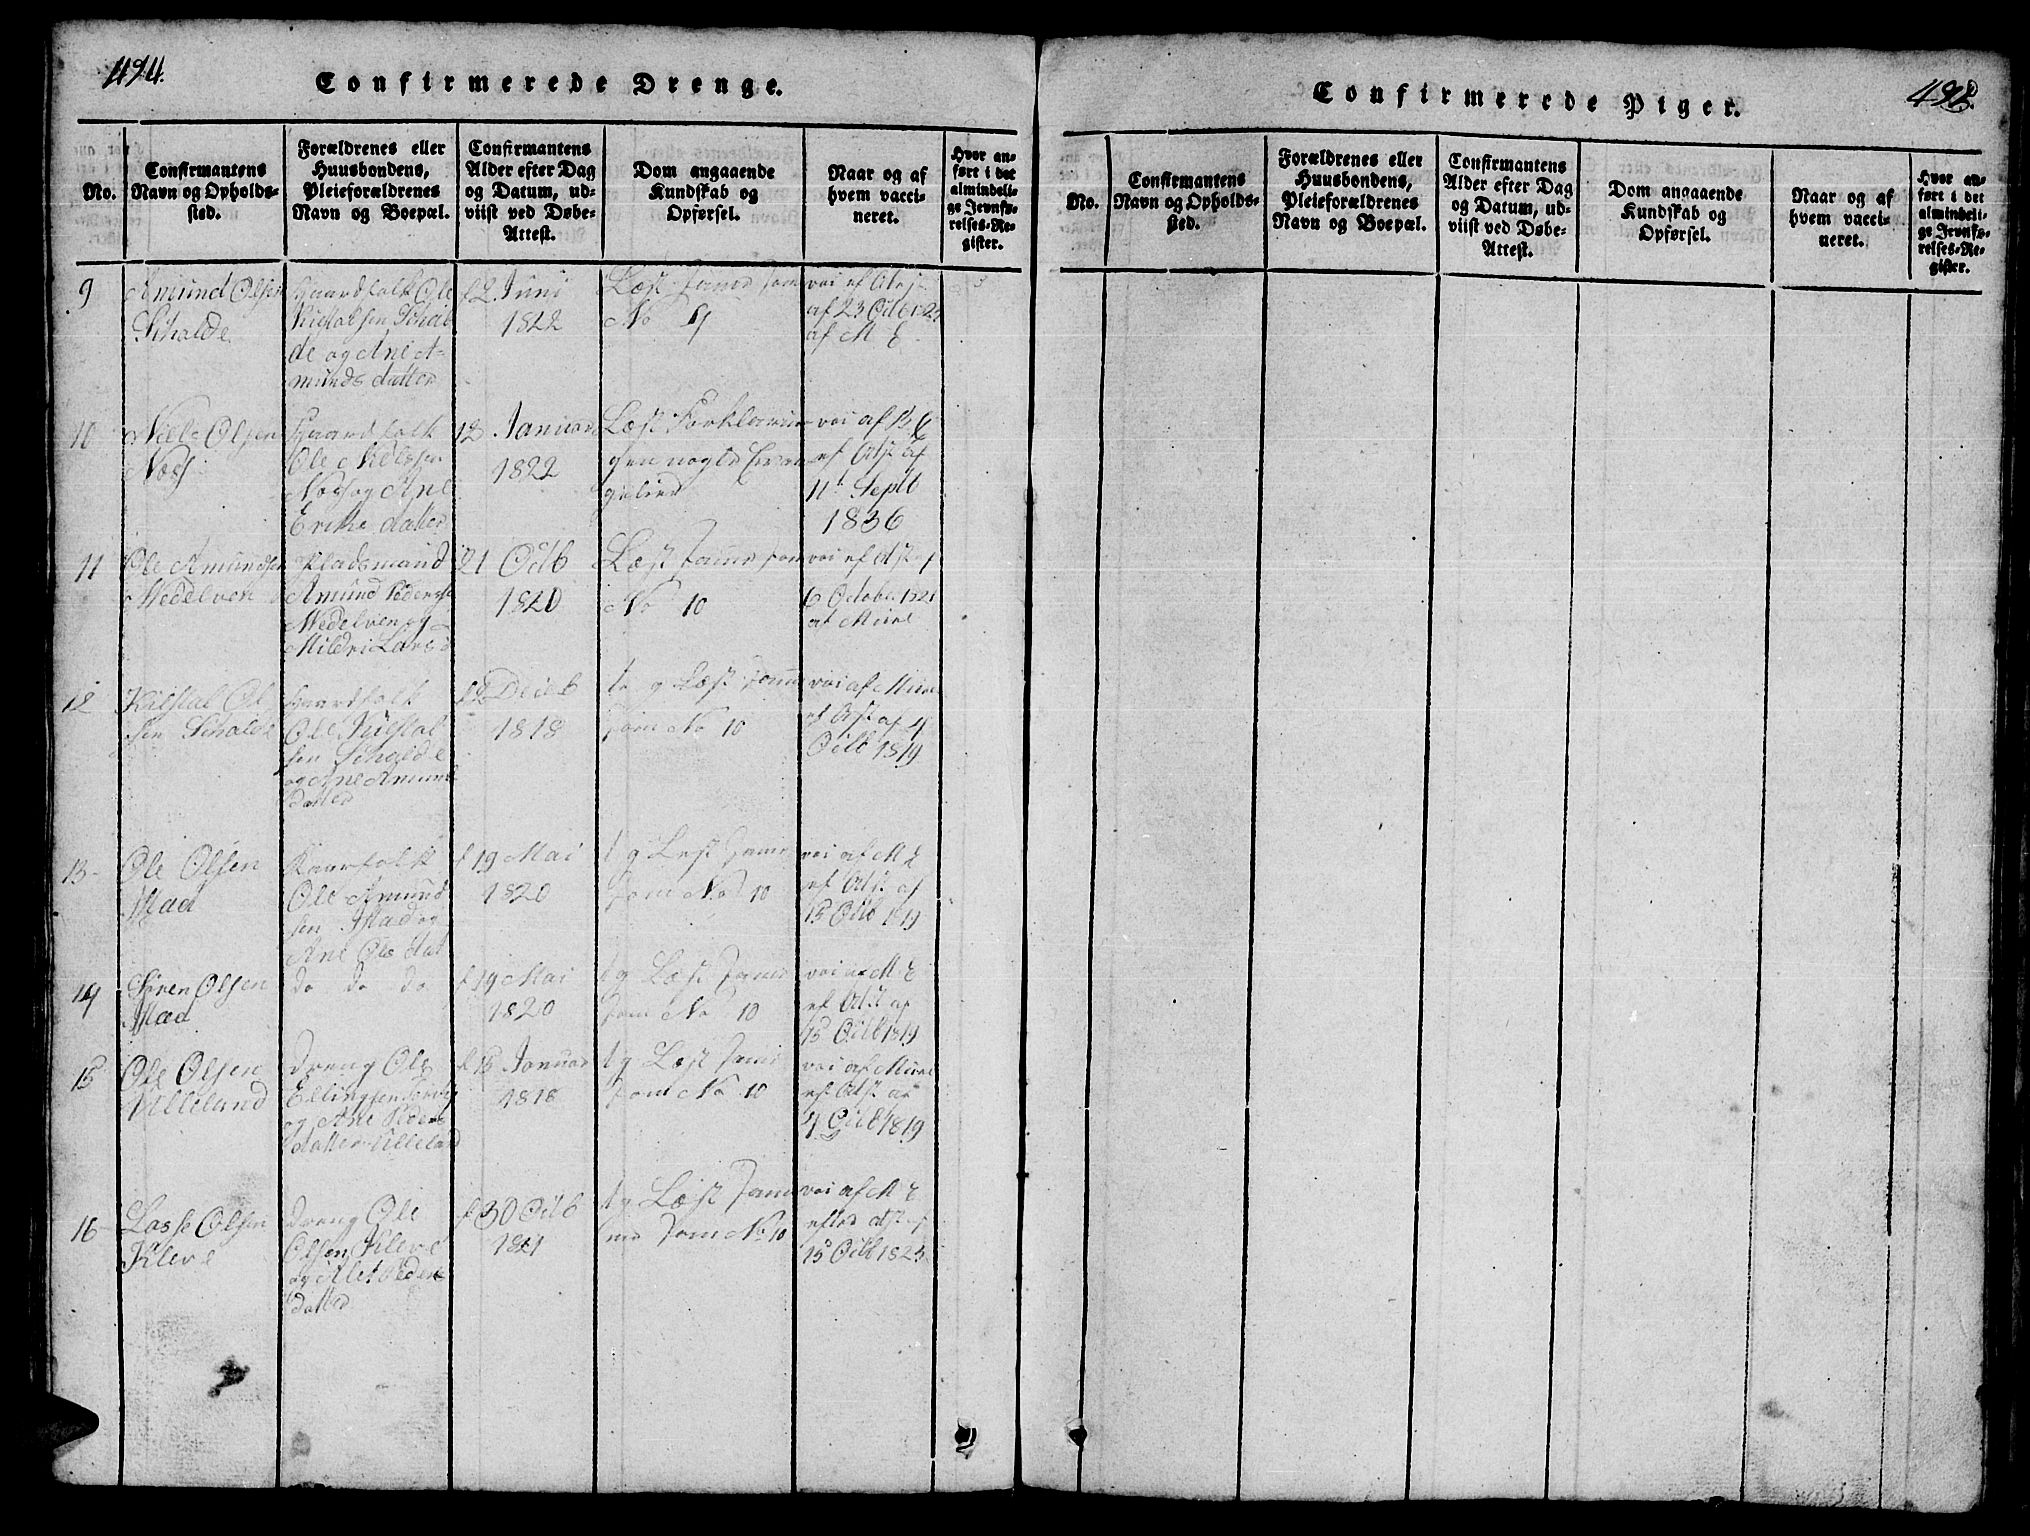 494.
Confirmerede Drenge.
No.
Confirmantens
Navn og Opholds-
sted.
Forældrenes eller
Huusbondens,
Pleieforældrenes
Navn og Boepæl.
Confirmantens
Alder efter Dag
og Datum, ud-
viist ved Døbe-
Attest.
Dom angaaende
Kundskab og
Opførsel.
Naar og af
hvem vacci-
neret.
Hvor an-
ført i det
almindeli-
ge Jevnfø-
relses-Re-
gister.
9
Amund Olsen
Schalde
Gaardfolk Ole
Schal-
de og Ane A-
munds datter
f 2 Juni
1822
Læst samt som
No 4
af 23 Octbr 23
af M E
10
Niels Olsen
Næss
Gaardfolk
Ole Nielssen
Næss og Ane
Eriks datter
12 Januar
1822
Læst Forklarin-
gen nogle Evan-
gelier
vai af M E
ef Atst af
11t Septb
1836
11
Ole Amundsen
Medelven
Pladsmand
Amund Peders
Medelven og
Mildri Larsd
21 Octb
1820
Læst samt som
No 10
vai ef Atst af
6 October 1821
af Miine
12
Kitstal Ol
sen Schalde
Gaardfolk
Ole Kittstal
sen Schalde
og Ane Amund
datter
f 2 Deceb
1818
tg Læst samt
som No 10
vai af Miine
ef Atst af 4
Octb 1819
13
Ole Olsen
Mæa
Gaarfolk
Ole Amund
sen Mæa og
Ane Ols dat
f 19 Mai
1820
tg Lest samt
som No 10
vai af M E
ef Atst af
15 Octb 1819
14
Søren Olsen
Mæa
do do do
f 19 Mai
1820
tg Læst samt
som No 10
vai af M E
ef Atst af
15 Octb 1819
15
Ole Olsen
Ulleland
Dreng Ole
Ellingsen
og Ane Peders
datter Ulleland
f 15 Januar
1818
tg Læst samt
som No 10
vai af Miine
ef Atst af
4 Octb 1819
16
Lasse Olsen
Kleve
Dreng Ole
Olsen Kleve
og Alet Peders
datter
f 30 Octb
1821
tg Læst samt
som No 10
vai af M E
efter Atst af
15 Octb 1823
Confirmerede Piger.
495.
No.
Confirmantens
Navn og Opholds-
sted.
Forældrenes eller
Huusbondens,
Pleieforældrenes
Navn og Boepæl.
Confirmantens
Alder efter Dag
og Datum, ud-
viist ved Døbe-
Attest.
Dom angaaende
Kundskab og
Opførsel.
Naar og af
hvem vacci-
neret.
Hvor an-
ført i det
almindeli-
ge Jevnfø-
relses-Re-
gister.